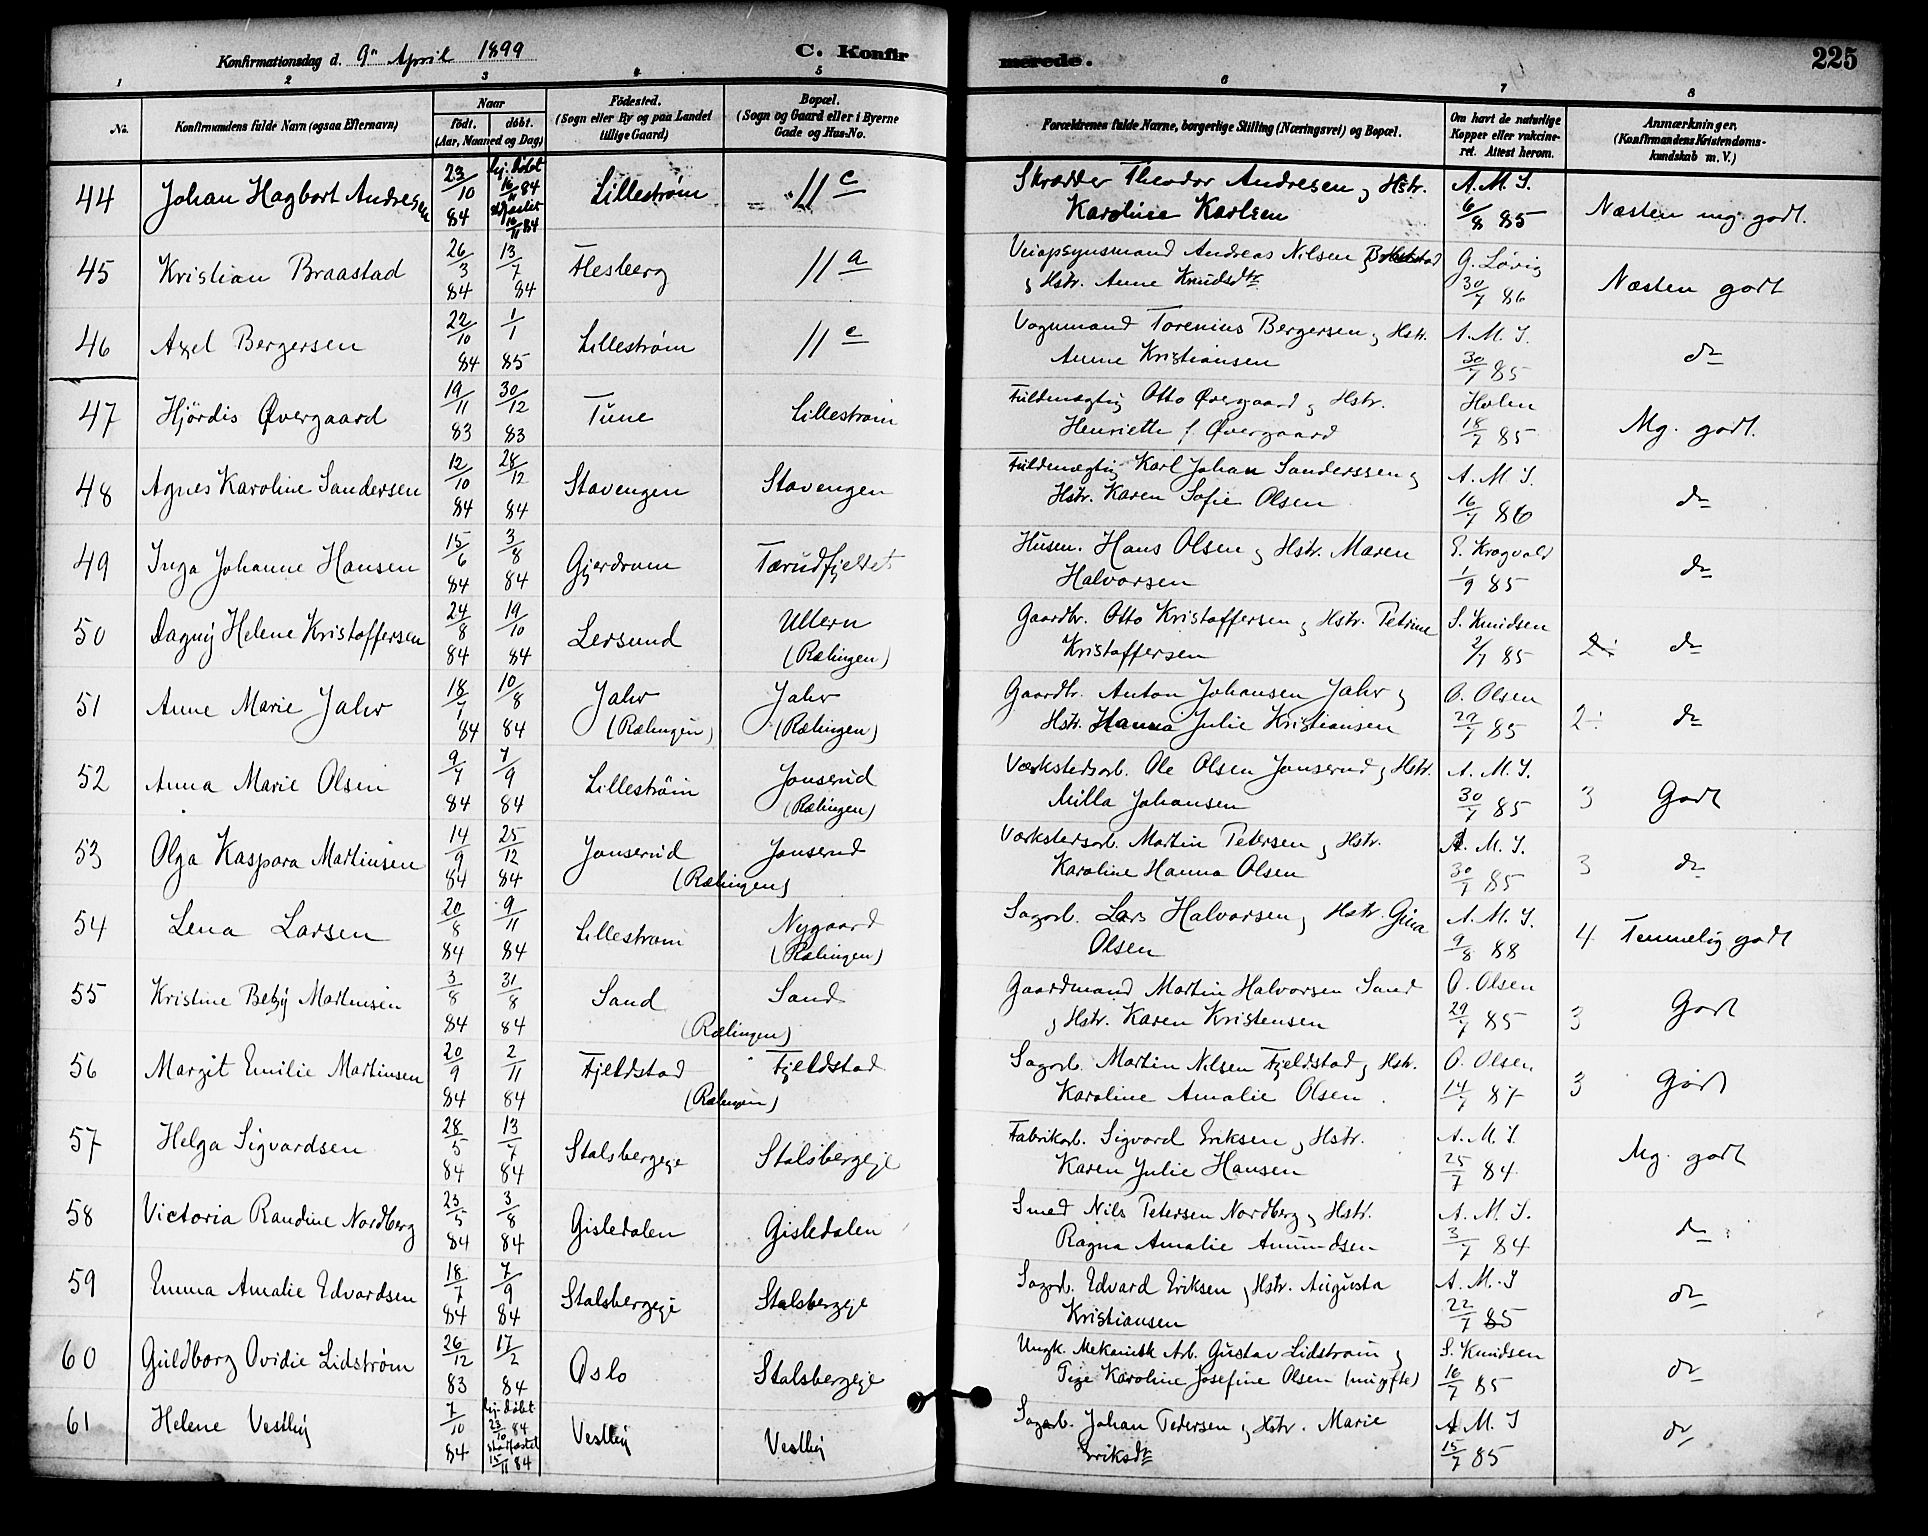 Konfirmationsdag d. 9de April 1899 C. Konfirmerede. 225
1 2 3 4 5 6 7 8
No. Konfirmandens fulde Navn (ogsaa Efternavn) Naar født. døbt. (Aar, Maaned og Dag) Fødested. (Sogn eller By og paa Landet tillige Gaard) Bopæl. (Sogn og Gaard eller i Byerne Gade og Hus-No. Forældrenes fulde Navne, borgerlige Stilling (Næringsvei) og Bopæl. Om havt de naturlige Kopper eller vaksineret. Attest herom. Anmærkninger. (Konfirmandens Kristendomskundskab m. V.)
44 Johan Hagbart Andresen 23/10 84 hj. døbt 16/11 84 stadfæstet 16/11 84 Lillestrøm 11 c Skrædder Theodor Andresen og Hstr. Karoline Karlsen A. M. S. 6/8 85 Næsten mg. godt.
45 Kristian Braastad 26/3 84 13/7 84 Flesberg 11 a Veiopsynsmand Andreas Nilsen Braastad og Hstr. Anne Knudsdtr G. Løvig 30/7 86 Næsten godt
46 Axel Bergersen 22/10 84 1/1 85 Lillestrøm 11 c Vognmand Torenius Bergersen og Hstr. Anne Kristiansen A. M. S. 30/7 85 do
47 Hjördis Øvergaard 19/11 83 30/12 83 Tune Lillestrøm Fuldmægtig Otto Øvergaard og Hstr. Henriette f. Øvergaard Holm 18/7 85 Mg. godt.
48 Agnes Karoline Sandersen 12/10 84 28/12 84 Stavengen Stavengen Fuldmægtig Karl Johan Sanderssen og Hstr. Karen Sofie Olsen A. M. S. 16/7 86 do
49 Inga Johanne Hansen 15/6 84 3/8 84 Gjerdrum Tærudfjeldet Husm. Hans Olsen og Hstr. Maren Halvorsen E. Kragvald 1/9 85 do
50 Dagny Helene Kristoffersen 24/8 84 19/10 84 Lersund Ullern (Rælingen) Gaardbr. Otto Kristoffersen og Hstr. Petrine Kristoffersen S. Knudsen 2/7 85 2÷ do
51 Anne Marie Jahr 18/7 84 10/8 84 Jahr (Rælingen) Jahr (Rælingen) Gaardbr. Anton Johansen Jahr og Hstr. Hanna Julie Kristiansen O. Olsen 29/7 85 2÷ do
52 Anna Marie Olsen 9/7 84 7/9 84 Lillestrøm Jonserud (Rælingen) Værkstedsarb. Ole Olsen Jonserud og Hstr. Milla Johansen A. M. S. 30/7 85 3 Godt
53 Olga Kaspara Martinsen 14/9 84 25/12 84 Jonserud Jonserud (Rælingen) Værkstedsarb. Martin Petersen og Hstr. Karoline Hanna Olsen A. M. S. 30/7 85 3 do
54 Lena Larsen 20/8 84 9/11 84 Lillestrøm Nygaard (Rælingen) Sagarb. Lars Halvorsen og Hstr. Gina Olsen A. M. S. 9/8 88 4 Temmelig godt
55 Kristine Betzy Martinsen 3/8 84 31/8 84 Sand Sand (Rælingen) Gaardmand Martin Halvorsen Sand og Hstr. Karen Kristensen O. Olsen 29/7 85 3 Godt
56 Margit Emilie Martinsen 20/9 84 2/11 84 Fjeldstad Fjeldstad (Rælingen) Sagarb. Martin Nilsen Fjeldstad og Hstr. Karoline Amalie Olsen. O. Olsen 14/7 87 3 Godt
57 Helga Sigvardsen 28/5 84 13/7 84 Stalsbergeje Stalsbergeje Fabrikarb. Sigvard Eriksen og Hstr. Karen Julie Hansen A. M. S. 25/7 84. Mg. godt
58 Victoria Randine Nordberg 23/5 84 3/8 84 Gisledalen Gisledalen Smed Nils Petersen Nordberg og Hstr. Ragna Amalie Amundsen A. M. S. 3/7 84 do
59 Emma Amalie Edvardsen 18/7 84 7/9 84 Stalsbergeje Stalsbergeje Sagarb. Edvard Eriksen og Hstr. Augusta Kristiansen A. M. S 22/7 85 do
60 Guldborg Ovidie Lidstrøm 26/12 83 17/2 84 Oslo Stalsbergeje Ungk. Mekanisk Arb. Gustav Lidstrøm og Pige Karoline Josefine Olsen (nu gifte) S. Knudsen 16/7 85 do
61 Helene Vestby 7/10 84 hj. døbt 23/10 84 stadfæstet 15/11 84 Vestby Vestby Sagarb. Johan Pedersen og Hstr. Marie Eriksdtr A. M. S 15/7 85 do